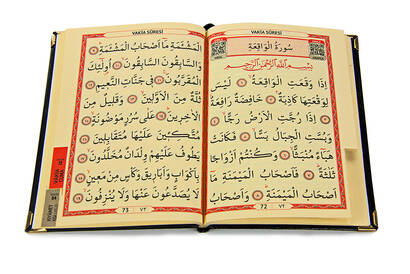 VAKİA SÛRESİ
سُورَةُ الْوَاقِعَةِ
بِسْمِ اللّٰهِ الرَّحْمٰنِ الرَّحِيمِ
اِذَا وَقَعَتِ الْوَاقِعَةُ ۝١ لَيْسَ
لِوَقْعَتِهَا كَاذِبَةٌ ۝٢ خَافِضَةٌ رَافِعَةٌ ۝٣
اِذَا رُجَّتِ الْاَرْضُ رَجًّا ۝٤
وَبُسَّتِ الْجِبَالُ بَسًّا ۝٥ فَكَانَتْ
هَبَاءً مُنْبَثًّا ۝٦ وَكُنْتُمْ اَزْوَاجًا
ثَلٰثَةً ۝٧ فَاَصْحَابُ الْمَيْمَنَةِ مَا
اَصْحَابُ الْمَيْمَنَةِ ۝٨ وَاَصْحَابُ
72 ٧٢
VAKİA SÛRESİ
الْمَشْـَٔمَةِ مَا اَصْحَابُ الْمَشْـَٔمَةِ ۝٩
وَالسَّابِقُونَ السَّابِقُونَ ۝١٠ اُولٰٓئِكَ
الْمُقَرَّبُونَ ۝١١ فِي جَنَّاتِ النَّعِيمِ ۝١٢
ثُلَّةٌ مِنَ الْاَوَّلِينَ ۝١٣ وَقَلِيلٌ مِنَ
الْاٰخِرِينَ ۝١٤ عَلٰى سُرُرٍ مَوْضُونَةٍ ۝١٥
مُتَّكِـِٔينَ عَلَيْهَا مُتَقَابِلِينَ ۝١٦
يَطُوفُ عَلَيْهِمْ وِلْدَانٌ مُخَلَّدُونَ ۝١٧
بِاَكْوَابٍ وَاَبَارِيقَ وَكَاْسٍ مِنْ مَعِينٍ ۝١٨
لَا يُصَدَّعُونَ عَنْهَا وَلَا يُنْزِفُونَ ۝١٩
73 ٧٣
KIYAMET